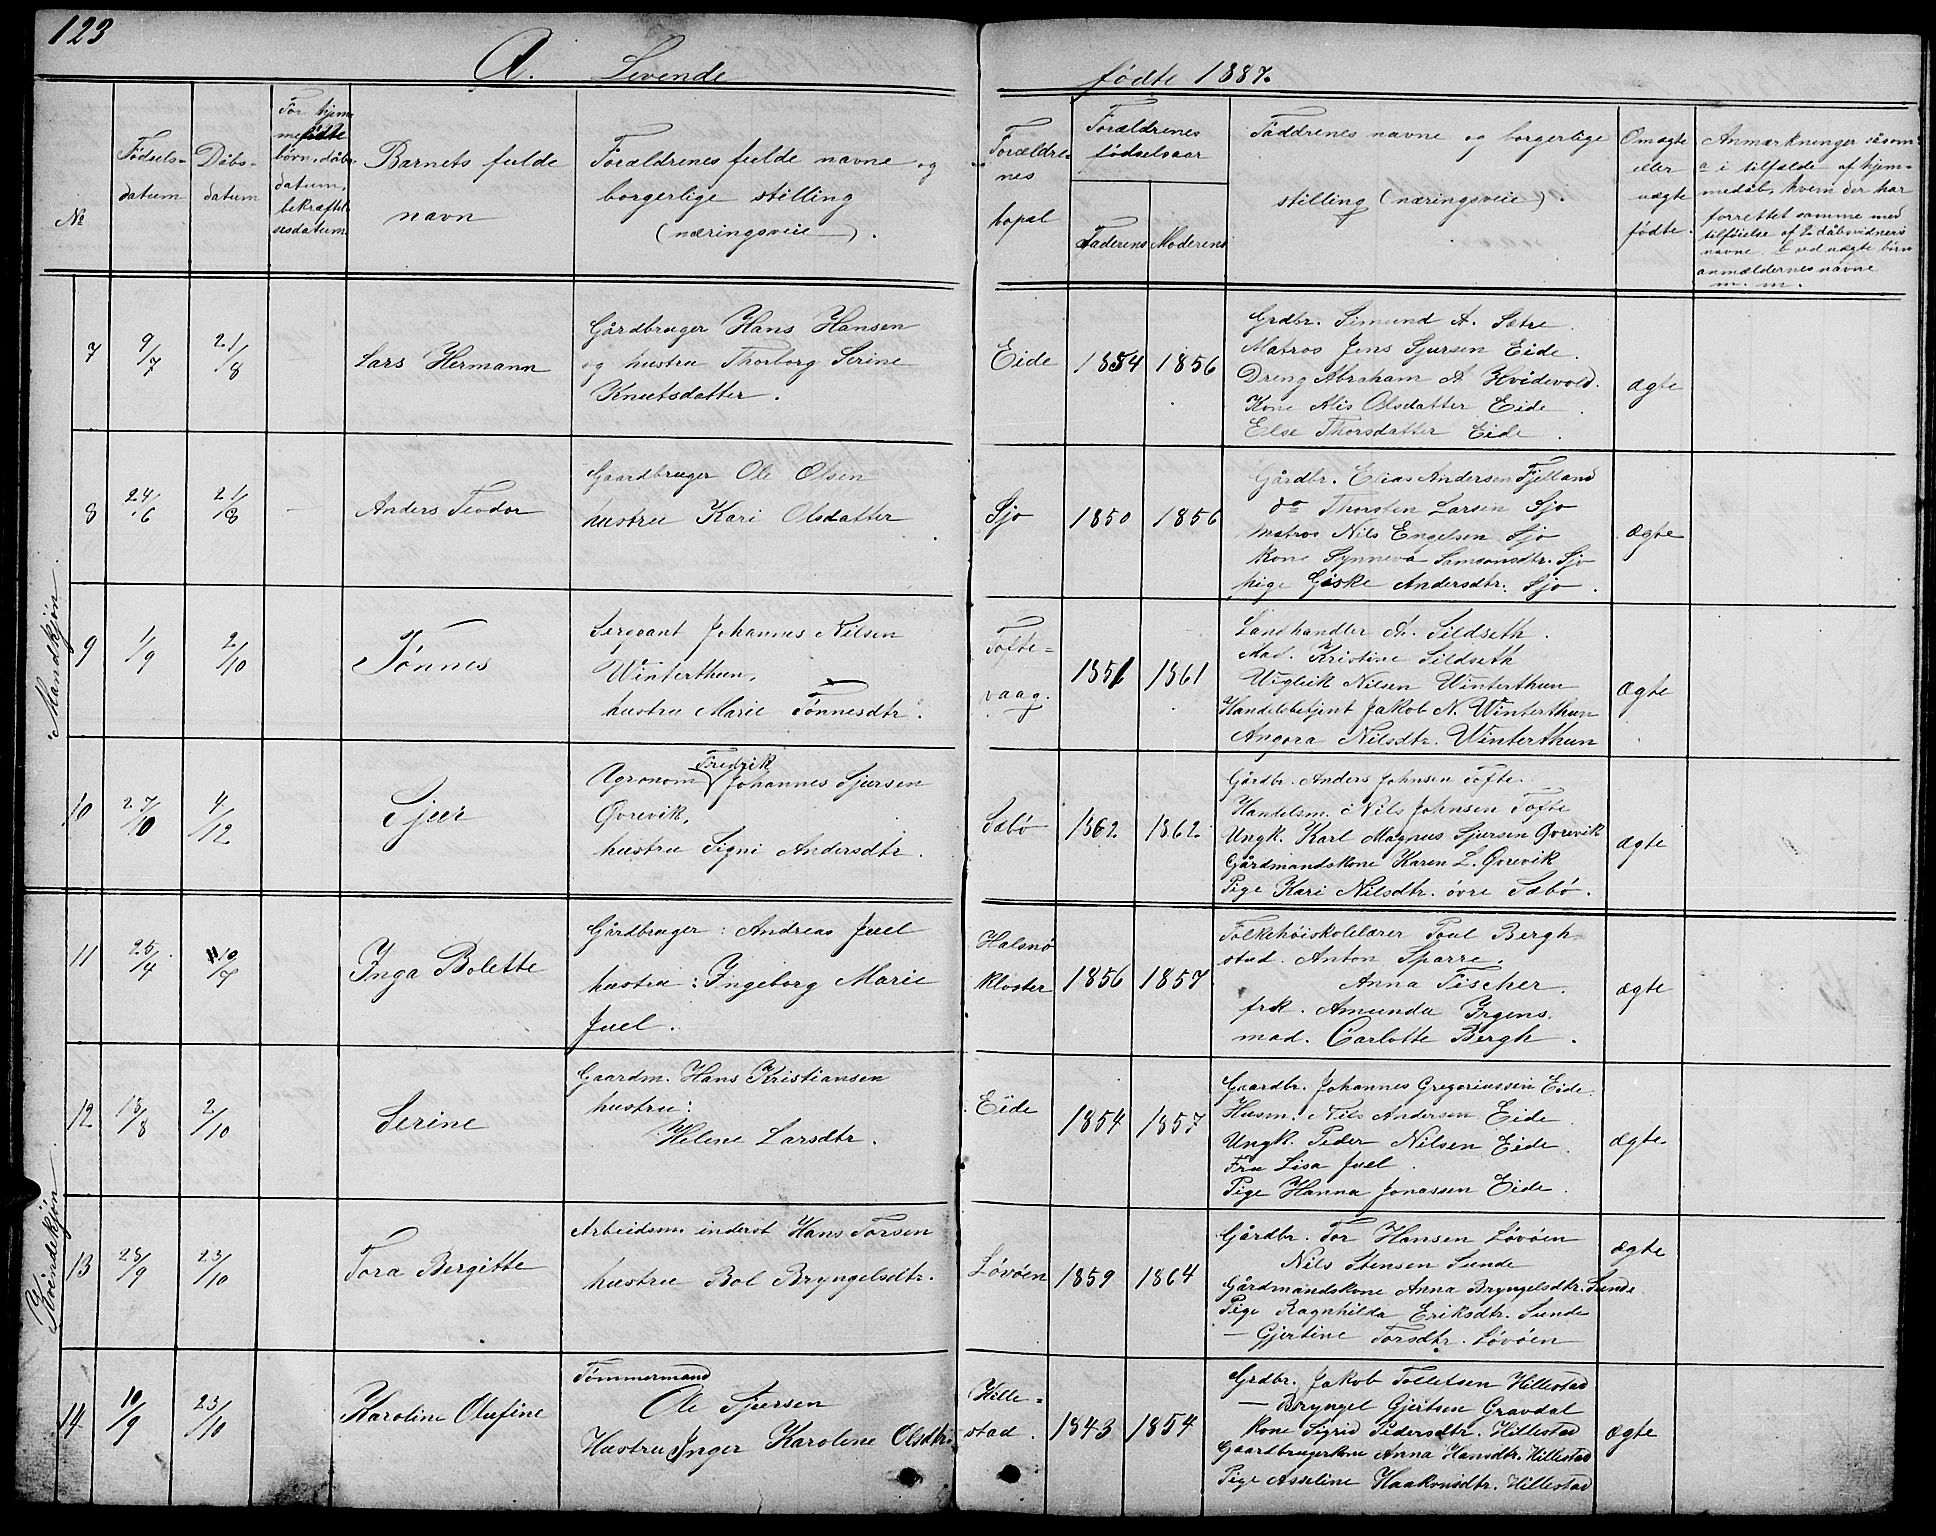 123
A. Levende
fødte 1887.
No
Fødsels-
datum
Dåbs-
datum
For hjem-
mefødte
børn, dåbs-
datum,
bekræftel-
sesdatum
Barnets fulde
navn
Forældrenes fulde navne og
borgerlige stilling
(næringsveie).
Forældre-
nes
bopæl
Forældrenes
fødselsaar
Faderens
Moderens
Faddrenes navne og borgerlige
stilling (næringsveie).
Om ægte
eller
uægte
fødte.
Anmærkninger såsom
a i tilfælde af hjem-
medåb, hvem der har
forrettet samme med
tilføielse af 2 dåbsvidners
navne. b ved uægte børn
anmældernes navne
m. m.
Mandkjøn.
7
9/7
21/8
Lars Hermann
Gårdbruger Hans Hansen
og hustru Thorborg Serine
Knutsdatter.
Eide
1854
1856
Grdbr. Simund A. Sætre.
Matros Jens Sjursen Eide.
Dreng Abraham A Hvidevold.
Kone Alis Olsdatter Eide.
Else Thorsdatter Eide.
ægte
8
24/6
21/8
Anders Teodor
Gaardbruger Ole Olsen
hustru Kari Olsdatter
Sjo
1850
1856
Gårdbr. Elias Andersen Fjelland
do Thorsten Larsen Sjo
Matros Nils Engelsen Sjo
Kone Synneva Samsonsdtr. Sjo
Pige Giske Andersdtr. Sjo.
ægte
9
1/9
2/10
Tønnes
Sergeant Johannes Nilsen
Winterthun,
hustru Marie Tønnesdtr.
Tofte-
vaag.
1851
1861
Landhandler A. Sildseth.
Mad. Kristine Sildseth
Vigleik Nilsen Winterthun
Handelsbetjent Jakob N. Winterthun
Angora Nilsdtr. Winterthun
ægte
10
27/10
4/12
Sjur
Fredrik
Agronom Johannes Sjursen
Øvrevik,
hustru Signi Andersdtr.
Sæbø
1862
1862
Gårdbr. Anders Johnsen Tofte.
Handelsm. Nils Johnsen Tofte
Ungk. Karl Magnus Sjursen Øvrevik
Gårdmandskone Karen L. Øvrevik
Pige Kari Nilsdtr. øvre Sæbø.
ægte
Kvindekjøn
11
25/4
10/7
Inga Bolette
Gårdbruger: Andreas Juel
hustru: Ingeborg Marie
Juel.
Halsnø
kloster
1856
1857
Folkehøiskolelærer Poul Bergh.
stud. Anton Sparre.
Anna Fischer.
frk. Amunda Irgens.
mad. Carlotte Bergh.
ægte
12
13/8
2/10
Serine
Gaardm. Hans Kristiansen
hustru:
Helene Larsdtr.
Eide
1854
1857
Gaardbr. Johannes Gregoriussen Eide.
Husm. Nils Andersen Eide.
Ungk. Peder Nilsen Eide.
Fru Lisa Juel.
Pige Hanna Jonassen Eide.
ægte
13
23/9
23/10
Tora Bergitte
Arbeidsm. inderst Hans Torsen
hustru Bol Bryngelsdtr.
Løvøen
1859
1864
Gårdbr. Tor Hansen Løvøen
Nils Stensen Sunde
Gårdmandskone Anna Bryngelsdtr. Sunde.
Pige Ragnhilda Eriksdtr. Sunde
— Gjertine Torsdtr. Løvøen
ægte
14
10/9
23/10
Karoline Olufine
Tømmermand
Ole Sjursen
Hustru Inger Karoline Olsdtr.
Hille-
stad.
1843
1854
Grdbr. Jakob Tolletsen Hillestad
— Bryngel Gjertsen Gravdal
Kone Sigrid Pedersdtr. Hillestad
Gaardbrugerkone Anna Hansdtr. Hillestad
Pige Asseline Haakonsdtr. Hillestad
ægte